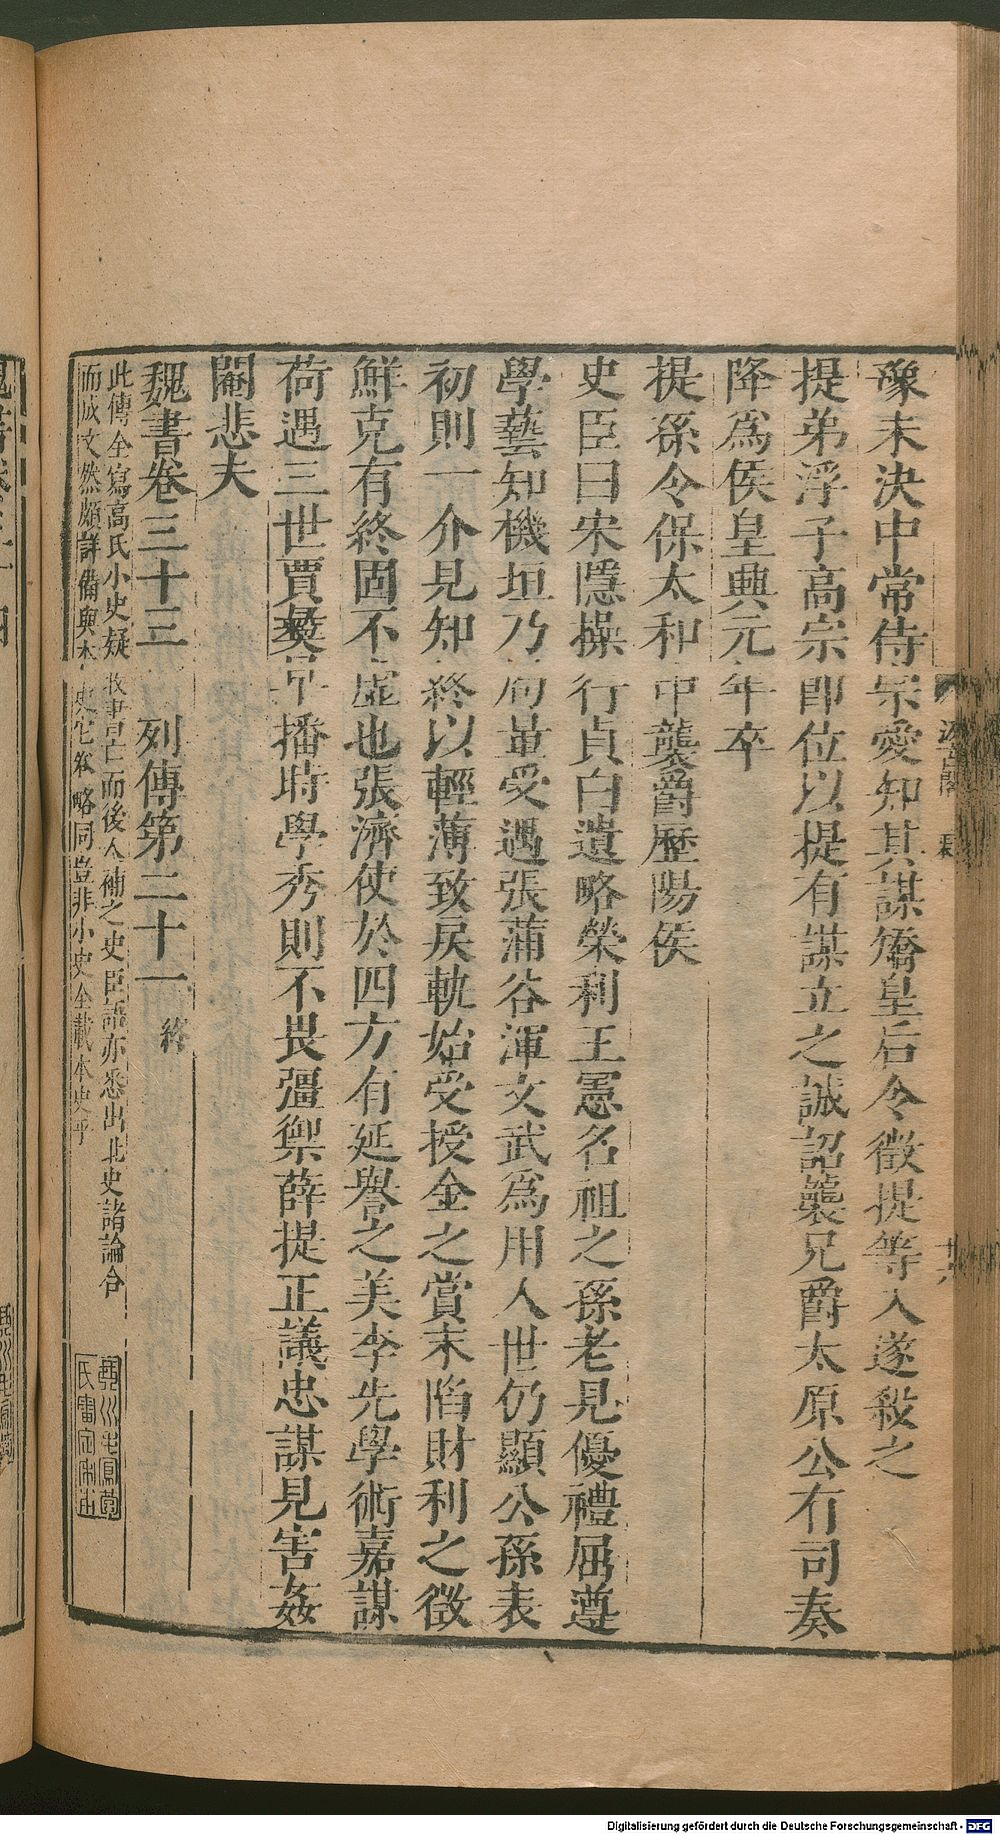 豫未決中常侍宗愛知其謀矯皇后令徵提等入遂殺之
提弟浮子高宗卽位以提有謀立之誠詔襲兄爵太原公有司奏
降爲侯皇興元年卒
提孫令保太和中襲爵歷陽侯
史臣曰宋隱操行貞白遺略榮利王憲名祖之孫老見優禮屈遵
學藝知機垣乃局量受遇張蒲谷渾文武爲用人世仍顯公孫表
初則一介見知終以輕薄致戾軌始受授金之賞末陷財利之徵
鮮克有終固不虛也張濟使於四方有延譽之美李先學術嘉謀
荷遇三世賈彝早播時學秀則不畏彊禦薛提正議忠謀見害姦
閹悲夫
魏書卷三十三 列傳第二十一 終
此傳全寫高氏小史疑收書亡而後人補之史臣語亦悉出北史諸論合
而成文然頗詳備與本史它卷略同豈非小史全載本史乎
汲古閣
十六
Digitalisierung gefördert durch die Deutsche Forschungsgemeinschaft - DFG